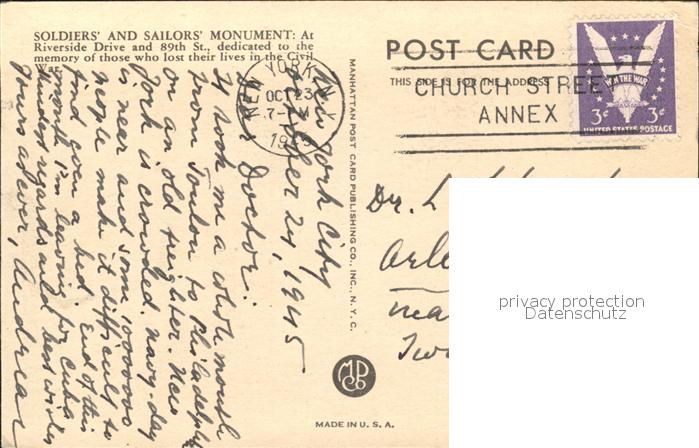 SOLDIERS' AND SAILORS' MONUMENT: At
Riverside Drive and 89th St., dedicated to the
memory of those who lost their lives in the Civil
War.
New York City
October 24, 1945
Dear Doctor:
It took me a whole month
from Toulon to Philadelphia
on an old freighter. New
York is crowded. Navy-day
is near and some 1000000
people make it difficult to
find even a bed. End of this
month I'm leaving for Cuba
Kindest regards and best wishes
Yours as ever, Andrea
NEW YORK, N.Y.
OCT 23
7-PM
MANHATTAN POST CARD PUBLISHING CO., INC., N.Y.C.
MPC
MADE IN U. S. A.
POST CARD
THIS SIDE IS FOR THE ADDRESS
CHURCH STREET
ANNEX
WIN THE WAR
3¢ 3¢
UNITED STATES POSTAGE
Dr.
privacy protection
Datenschutz